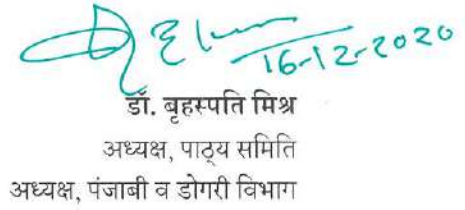 16-12-2020
डॉ. बृहस्पति मिश्र
अध्यक्ष, पाठ्य समिति
अध्यक्ष, पंजाबी व डोगरी विभाग